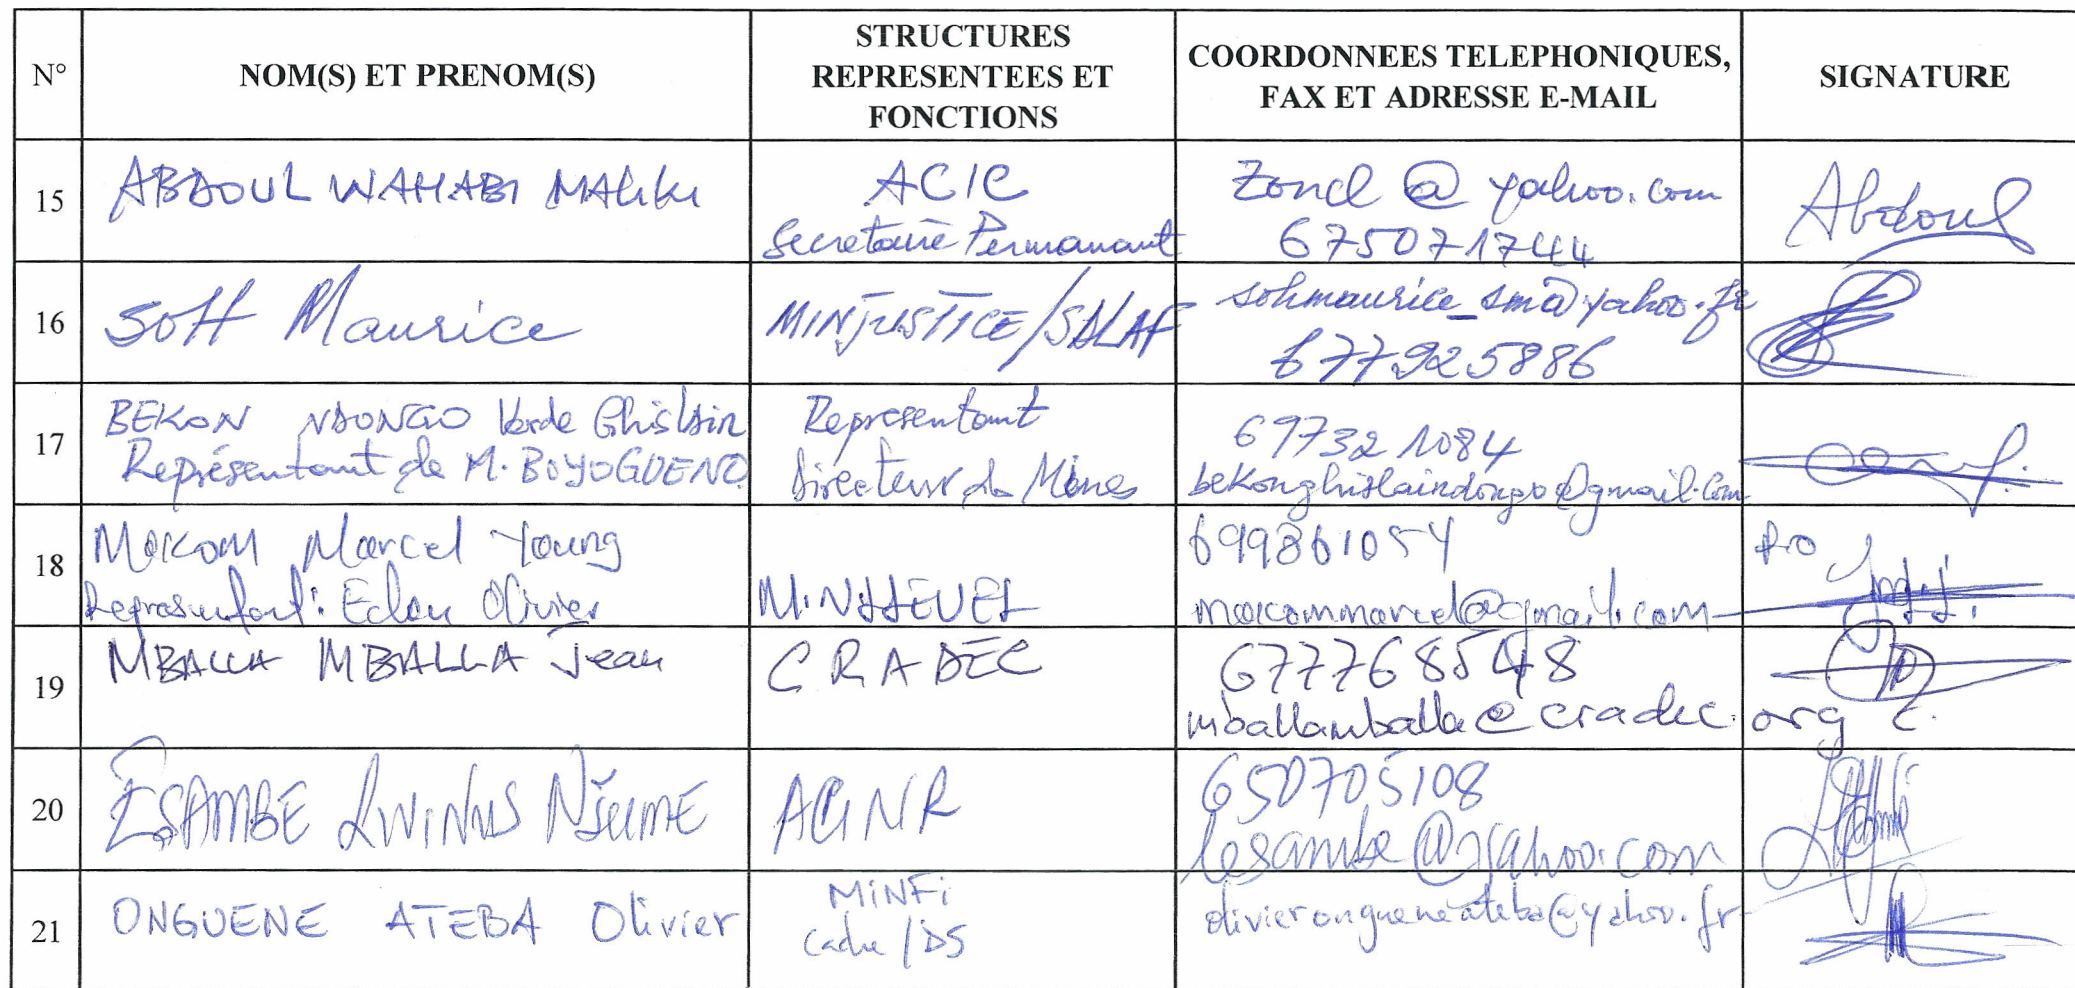 N°
NOM(S) ET PRENOM(S)
STRUCTURES
REPRESENTEES ET
FONCTIONS
COORDONNEES TELEPHONIQUES,
FAX ET ADRESSE E-MAIL
SIGNATURE
15
ABDOUL WAHABI Maliki
ACIC
Secretaire Permanant
Zoncl @ yahoo.com
675071744
Abdoul
16
SOH Maurice
MINJUSTICE/
sohmaurice_sm@yahoo.fr
677925886
17
BEKON NDONGO Ghislain
Représentant de M. BOYOGUENO
Representant
Directeur de Mines
697321084
bekonghislaindongo@gmail.com
18
MOKOM Marcel Young
Olivier
699861054
mokommarcel@gmail.com
P.O
19
MBALLA MBALLA Jean
CRADEC
677768548
mballamballa@cradec.org
20
ESAMBE LWINUS NSUME
650705108
lesambe@yahoo.com
21
ONGUENE ATEBA Olivier
MINFI
Cadre/DS
olivierongueneateba@yahoo.fr